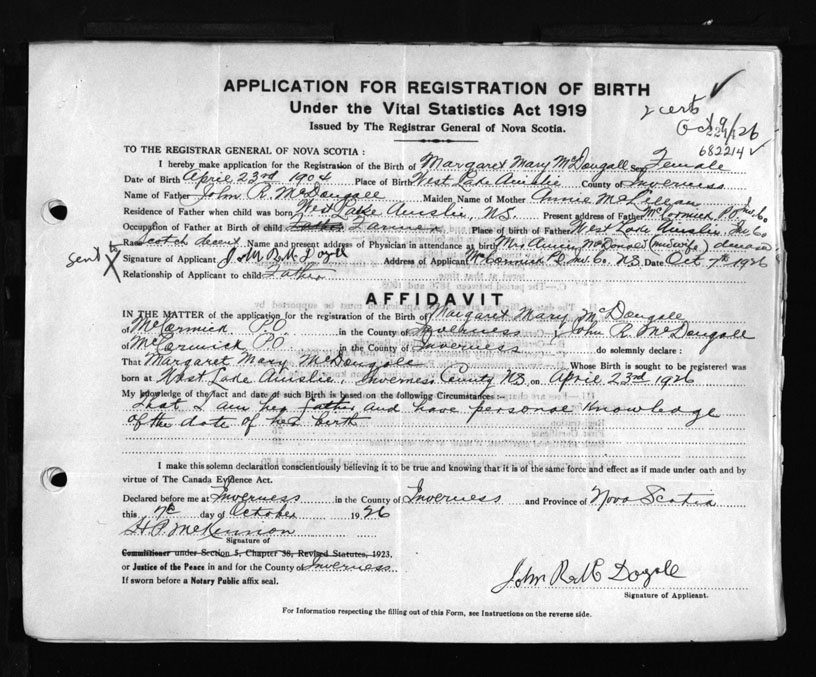 APPLICATION FOR REGISTRATION OF BIRTH
Under the Vital Statistics Act 1919
Issued by The Registrar General of Nova Scotia.
2 certs
Oct 9/26
682214
TO THE REGISTRAR GENERAL OF NOVA SCOTIA:
I hereby make application for the Registration of the Birth of Margaret Mary McDougall Sex Female
Date of Birth April 23rd 1904 Place of Birth West Lake Ainslie County of Inverness
Name of Father John R. McDougall Maiden Name of Mother Annie McLellan
Residence of Father when child was born West Lake Ainslie, N.S. Present address of Father McCormick P.O. Inv. Co
Occupation of Father at Birth of child Farmer Place of birth of Father West Lake Ainslie Inv Co
Race Scotch decent Name and present address of Physician in attendance at birth Mrs McDonald (midwife)
sent X
Signature of Applicant Address of Applicant McCormick P.O. Inv. Co. N.S. Date Oct 7th 1926
Relationship of Applicant to child Father
AFFIDAVIT
IN THE MATTER of the application for the registration of the Birth of Margaret Mary McDougall
of McCormick P.O. in the County of Inverness I, John R. McDougall
of McCormick P.O. in the County of Inverness do solemnly declare:
That Margaret Mary McDougall Whose Birth is sought to be registered was
born at West Lake Ainslie, Inverness County N.S. on April 23rd 1926
My knowledge of the fact and date of such Birth is based on the following Circumstances:—
that I am her father and have personal knowledge
of the date of her birth
I make this solemn declaration conscientiously believing it to be true and knowing that it is of the same force and effect as if made under oath and by
virtue of The Canada Evidence Act.
Declared before me at Inverness in the County of Inverness and Province of Nova Scotia
this 7th day of October 1926
H. P. McKinnon
Signature of
Commissioner under Section 5, Chapter 38, Revised Statutes, 1923.
or Justice of the Peace in and for the County of Inverness
If sworn before a Notary Public affix seal.
John R Mc Dogall
Signature of Applicant.
For Information respecting the filling out of this Form, see Instructions on the reverse side.